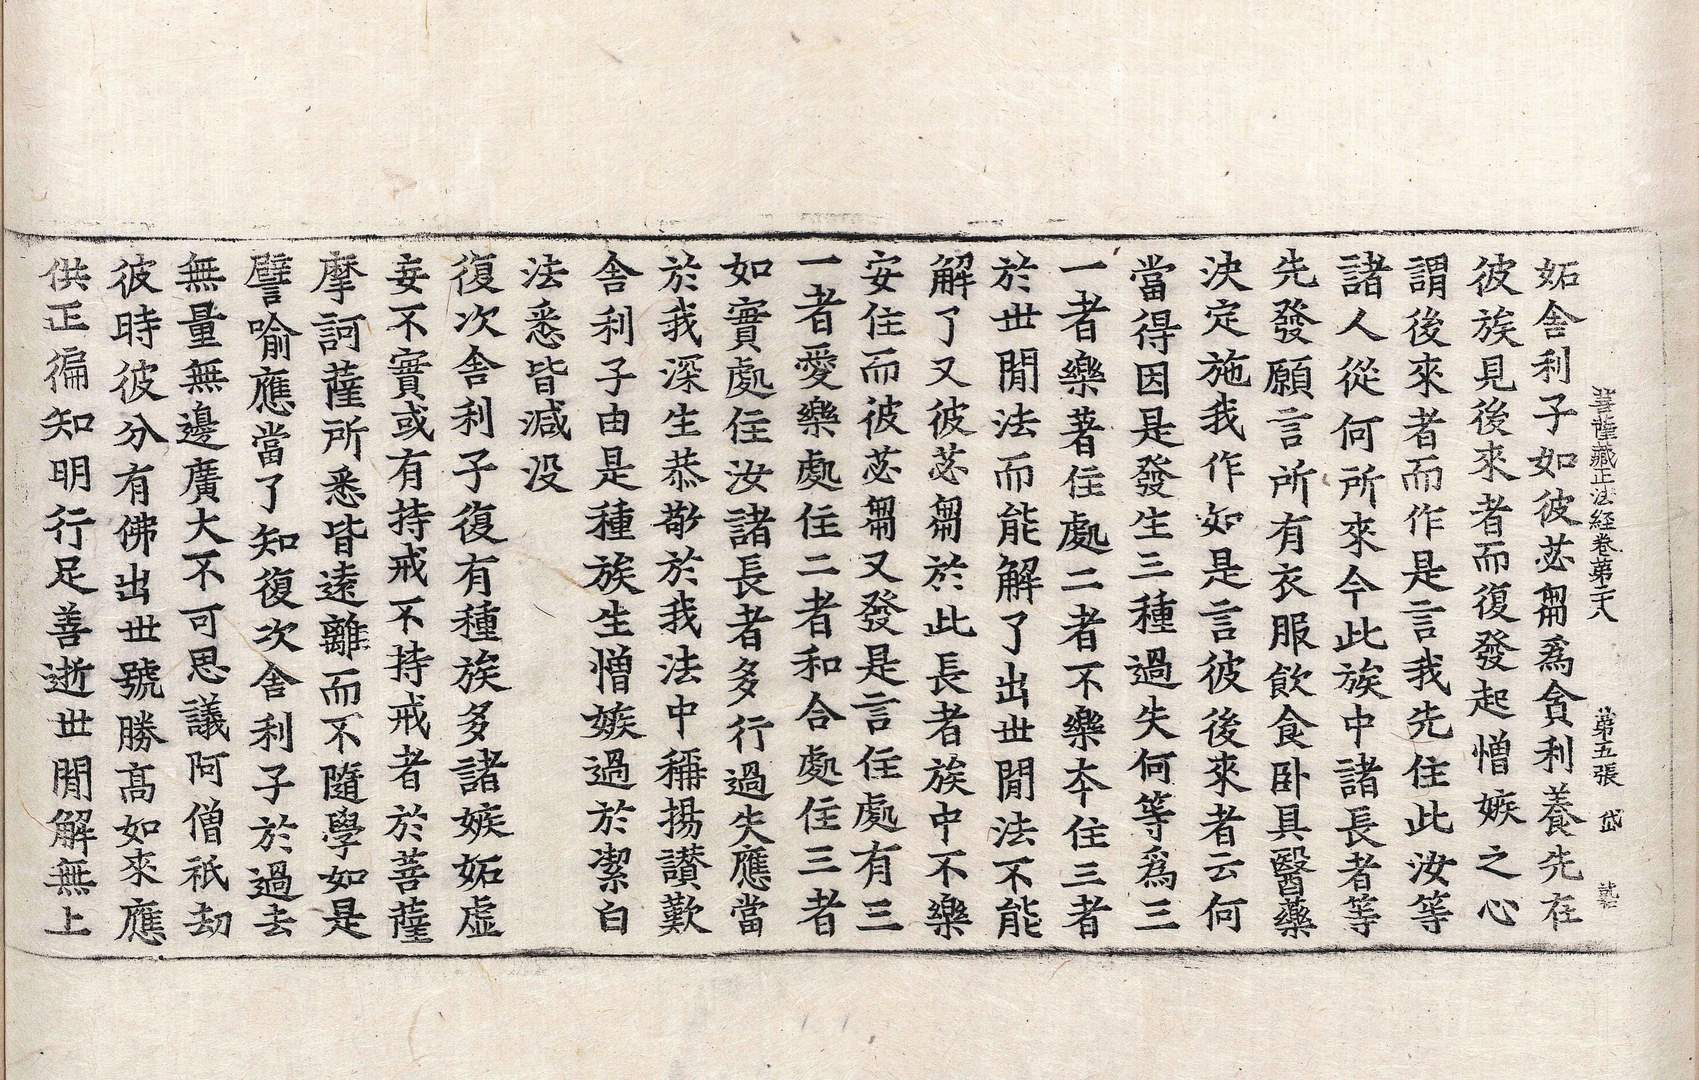 菩薩藏正法経卷第三八　第五張　岱
妬舍利子如彼苾芻爲貪利養先在
彼族見後來者而復發起憎嫉之心
謂後來者而作是言我先住此汝等
諸人從何所來今此族中諸長者等
先發願言所有衣服飲食卧具醫藥
決定施我作如是言彼後來者云何
當得因是發生三種過失何等爲三
一者樂著住處二者不樂本住三者
於世閒法而能解了出世閒法不能
解了又彼苾芻於此長者族中不樂
安住而彼苾芻又發是言住處有三
一者愛樂處住二者和合處住三者
如實處住汝諸長者多行過失應當
於我深生恭敬於我法中稱揚讃歎
舍利子由是種族生憎嫉過於潔白
法悉皆減没
復次舍利子復有種族多諸嫉妬虛
妄不實或有持戒不持戒者於菩薩
摩訶薩所悉皆遠離而不隨學如是
譬喻應當了知復次舍利子於過去
無量無邊廣大不可思議阿僧祇劫
彼時彼分有佛出世號勝高如來應
供正徧知明行足善逝世閒解無上